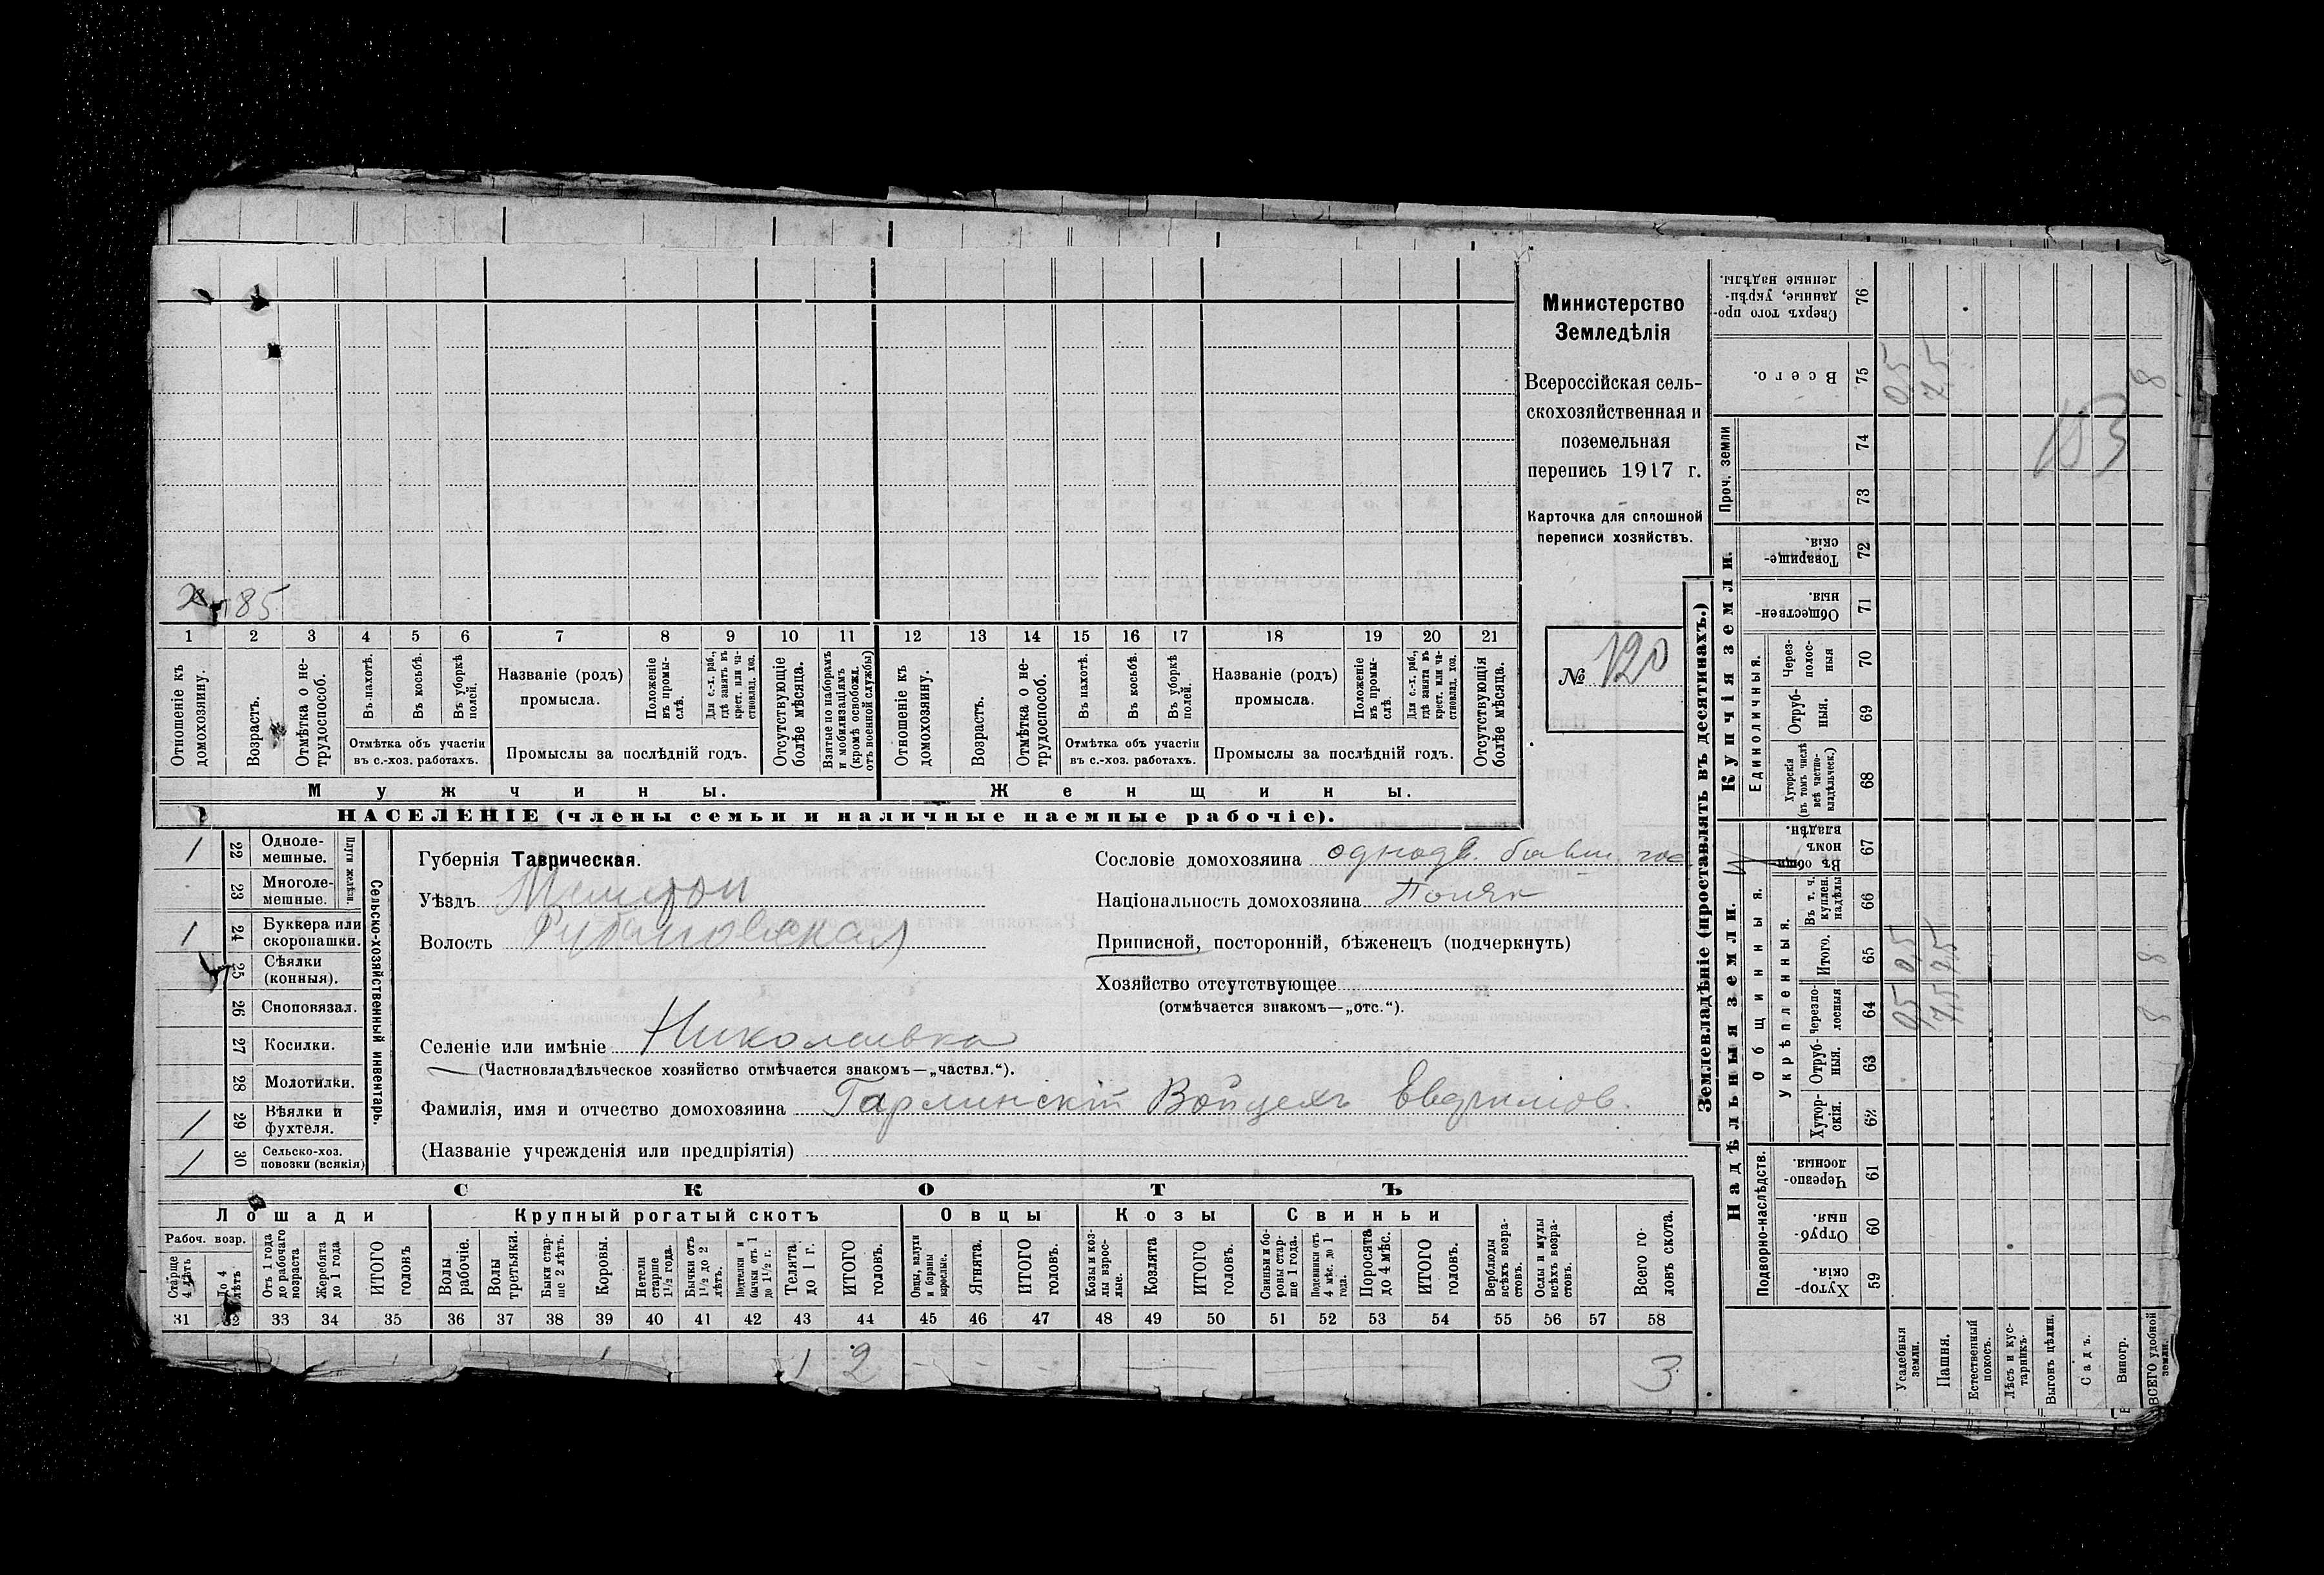 Министерство
Земледѣлія
Всероссійская сель-
скохозяйственная и
поземельная
перепись 1917 г.
Карточка для сплошной
переписи хозяйствъ.
№ 120
85
1 2 3 4 5 6 7 8 9 10 11 12 13 14 15 16 17 18 19 20 21
Отношеніе къ домохозяину.
Возрастъ.
Отмѣтка о не-трудоспособ.
Въ пахотѣ.
Въ косьбѣ.
Въ уборкѣ полей.
Отмѣтка объ участіи
въ с.-хоз. работахъ.
Названіе (родъ)
промысла.
Положеніе въ промы-слѣ.
Для с.-х. раб., гдѣ занятъ въ крест. или ча-стновлад. хоз.
Промыслы за послѣдній годъ.
Отсутствующіе болѣе мѣсяца.
Взятые по наборамъ и мобилизаціямъ (кромѣ освобожд. отъ военной службы)
Отношеніе къ домохозяину.
Возрастъ.
Отмѣтка о не-трудоспособ.
Въ пахотѣ.
Въ косьбѣ.
Въ уборкѣ полей.
Отмѣтка объ участіи
въ с.-хоз. работахъ.
Названіе (родъ)
промысла.
Положеніе въ промы-слѣ.
Для с.-х. раб., гдѣ занята въ крест. или ча-стновлад. хоз.
Промыслы за послѣдній годъ.
Отсутствующія болѣе мѣсяца.
Мужчины.
Женщины.
НАСЕЛЕНІЕ (члены семьи и наличные наемные рабочіе).
Сельско-хозяйственный инвентарь.
Плуги желѣз.
1 22 Одноле-мешные.
23 Многоле-мешные.
1 24 Буккера или скоропашки.
25 Сѣялки (конныя).
26 Сноповязал.
27 Косилки.
28 Молотилки.
1 29 Вѣялки и фухтеля.
1 30 Сельско-хоз. повозки (всякія)
Губернія Таврическая.
Уѣздъ Мелитоп
Волость Рубановская
Селеніе или имѣніе Николаевка
(Частновладѣльческое хозяйство отмѣчается знакомъ—„частвл.“).
Фамилія, имя и отчество домохозяина Гарлинскій Войцехъ
(Названіе учрежденія или предпріятія)
Сословіе домохозяина однодв. бывш. гос
Національность домохозяина Поляк
Приписной, посторонній, бѣженецъ (подчеркнуть)
Хозяйство отсутствующее
(отмѣчается знакомъ—„отс.“).
СКОТЪ
Лошади
Рабоч. возр.
Старше 4 лѣтъ
До 4 лѣтъ
Отъ 1 года до рабочаго возраста
Жеребята до 1 года
ИТОГО головъ
Крупный рогатый скотъ
Волы рабочіе.
Волы третьяки.
Быки стар-ше 2 лѣтъ.
Коровы.
Нетели старше 1½ года.
Бычки отъ 1½ до 2 лѣтъ.
Подтелки и бычки отъ 1 до 1½ г.
Телята до 1 г.
ИТОГО головъ.
Овцы
Овцы, валухи и бараны взрослые.
Ягнята.
ИТОГО головъ.
Козы
Козы и коз-лы взрос-лые.
Козлята
ИТОГО головъ.
Свиньи
Свиньи и бо-ровы стар-ше 1 года.
Подсвинки отъ 4 мѣс. до 1 года.
Поросята до 4 мѣс.
ИТОГО головъ.
Верблюды всѣхъ возра-стовъ.
Ослы и мулы всѣхъ возра-стовъ.
Всего го-ловъ скота.
31 32 33 34 35 36 37 38 39 40 41 42 43 44 45 46 47 48 49 50 51 52 53 54 55 56 57 58
1 1 2 - - - 3
Землевладѣніе (проставлять въ десятинахъ.)
Купчія земли.
Надѣльныя земли.
Сверхъ того про-данные, укрѣп-ленные надѣлы. 76
Всего. 75 0,5 7,5 8
Проч. земли 74 73
153
Товарище-скія. 72
Обществен-ныя. 71
Единоличныя.
Через-полос-ныя 70
Отруб-ныя. 69
Хуторскія (въ томъ числѣ всѣ частно-владѣльческ.) 68
Общинныя.
Въ общин-номъ владѣн. 67
Укрѣпленныя.
Въ т. ч. куплен. надѣлы 66
Итого. 65 0,5 7,5 8
Черезпо-лосныя 64 0,5 7,5 8
Отруб-ныя. 63
Хутор-скія. 62
Подворно-наслѣдств.
Черезпо-лосныя 61
Отруб-ныя. 60
Хутор-скія. 59
Усадебныя земли.
Пашня.
Естественный покосъ.
Лѣсъ и кус-тарникъ.
Выгонъ цѣлин.
Садъ.
Виногр.
ВСЕГО удобной земли.